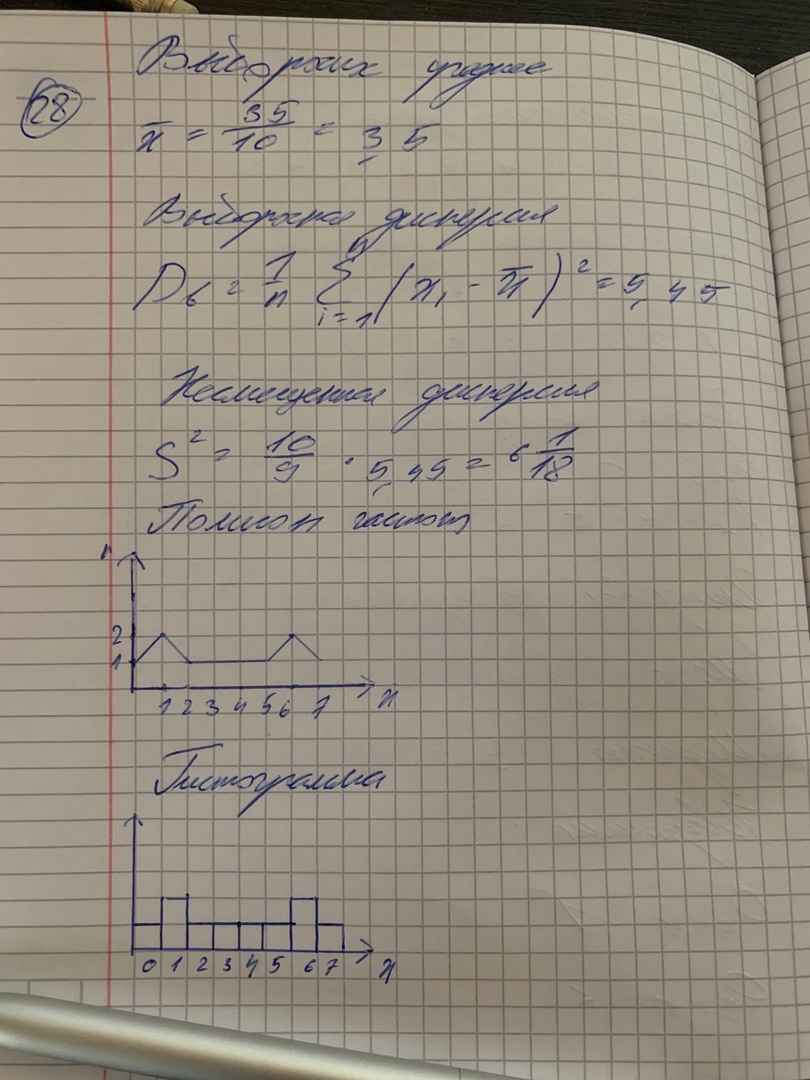 28
Выборочное среднее
x̄ = 35/10 = 3,5
Выборочная дисперсия
Dв = 1/n Σ (i=1, n) (xᵢ - x̄)² = 5,45
Несмещенная дисперсия
S² = 10/9 · 5,45 = 6 1/18
Полигон частот
2
1
1 2 3 4 5 6 7 x
Гистограмма
0 1 2 3 4 5 6 7 x